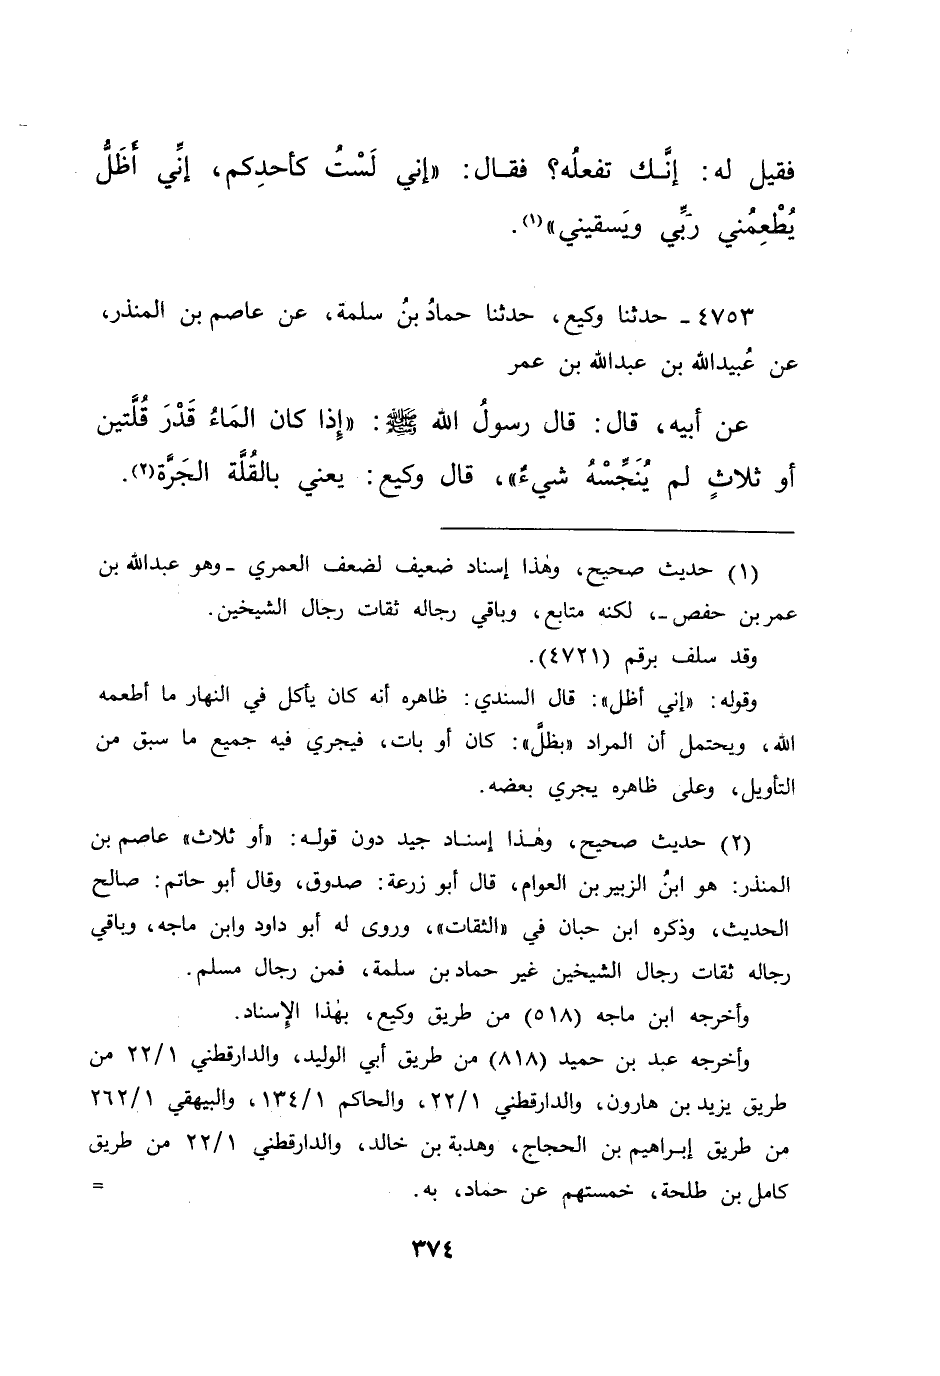 فقيل له: إنَّك تفعلُه؟ فقال: «إني لَسْتُ كأحدِكم، إنِّي أَظَلُّ
يُطْعِمُني رَبِّي ويَسقيني»(١).
٤٧٥٣ ـ حدثنا وكيع، حدثنا حمادُ بنُ سلمة، عن عاصم بن المنذر،
عن عُبيدالله بن عبدالله بن عمر
عن أبيه، قال: قال رسولُ الله ﷺ: «إِذا كان المَاءُ قَدْرَ قُلَّتين
أو ثلاثٍ لم يُنَجِّسْهُ شيءٌ»، قال وكيع: يعني بالقُلَّة الجَرَّة(٢).
(١) حديث صحيح، وهٰذا إسناد ضعيف لضعف العمري ـ وهو عبدالله بن
عمر بن حفص ـ، لكنه متابع، وباقي رجاله ثقات رجال الشيخين.
وقد سلف برقم (٤٧٢١).
وقوله: «إني أظل»: قال السندي: ظاهره أنه كان يأكل في النهار ما أطعمه
الله، ويحتمل أن المراد «بظلَّ»: كان أو بات، فيجري فيه جميع ما سبق من
التأويل، وعلى ظاهره يجري بعضه.
(٢) حديث صحيح، وهٰذا إسناد جيد دون قوله: «أو ثلاث» عاصم بن
المنذر: هو ابنُ الزبير بن العوام، قال أبو زرعة: صدوق، وقال أبو حاتم: صالح
الحديث، وذكره ابن حبان في «الثقات»، وروى له أبو داود وابن ماجه، وباقي
رجاله ثقات رجال الشيخين غير حماد بن سلمة، فمن رجال مسلم.
وأخرجه ابن ماجه (٥١٨) من طريق وكيع، بهٰذا الإِسناد.
وأخرجه عبد بن حميد (٨١٨) من طريق أبي الوليد، والدارقطني ٢٢/١ من
طريق يزيد بن هارون، والدارقطني ٢٢/١، والحاكم ١٣٤/١، والبيهقي ٢٦٢/١
من طريق إبراهيم بن الحجاج، وهدبة بن خالد، والدارقطني ٢٢/١ من طريق
كامل بن طلحة، خمستهم عن حماد، به. =
٣٧٤